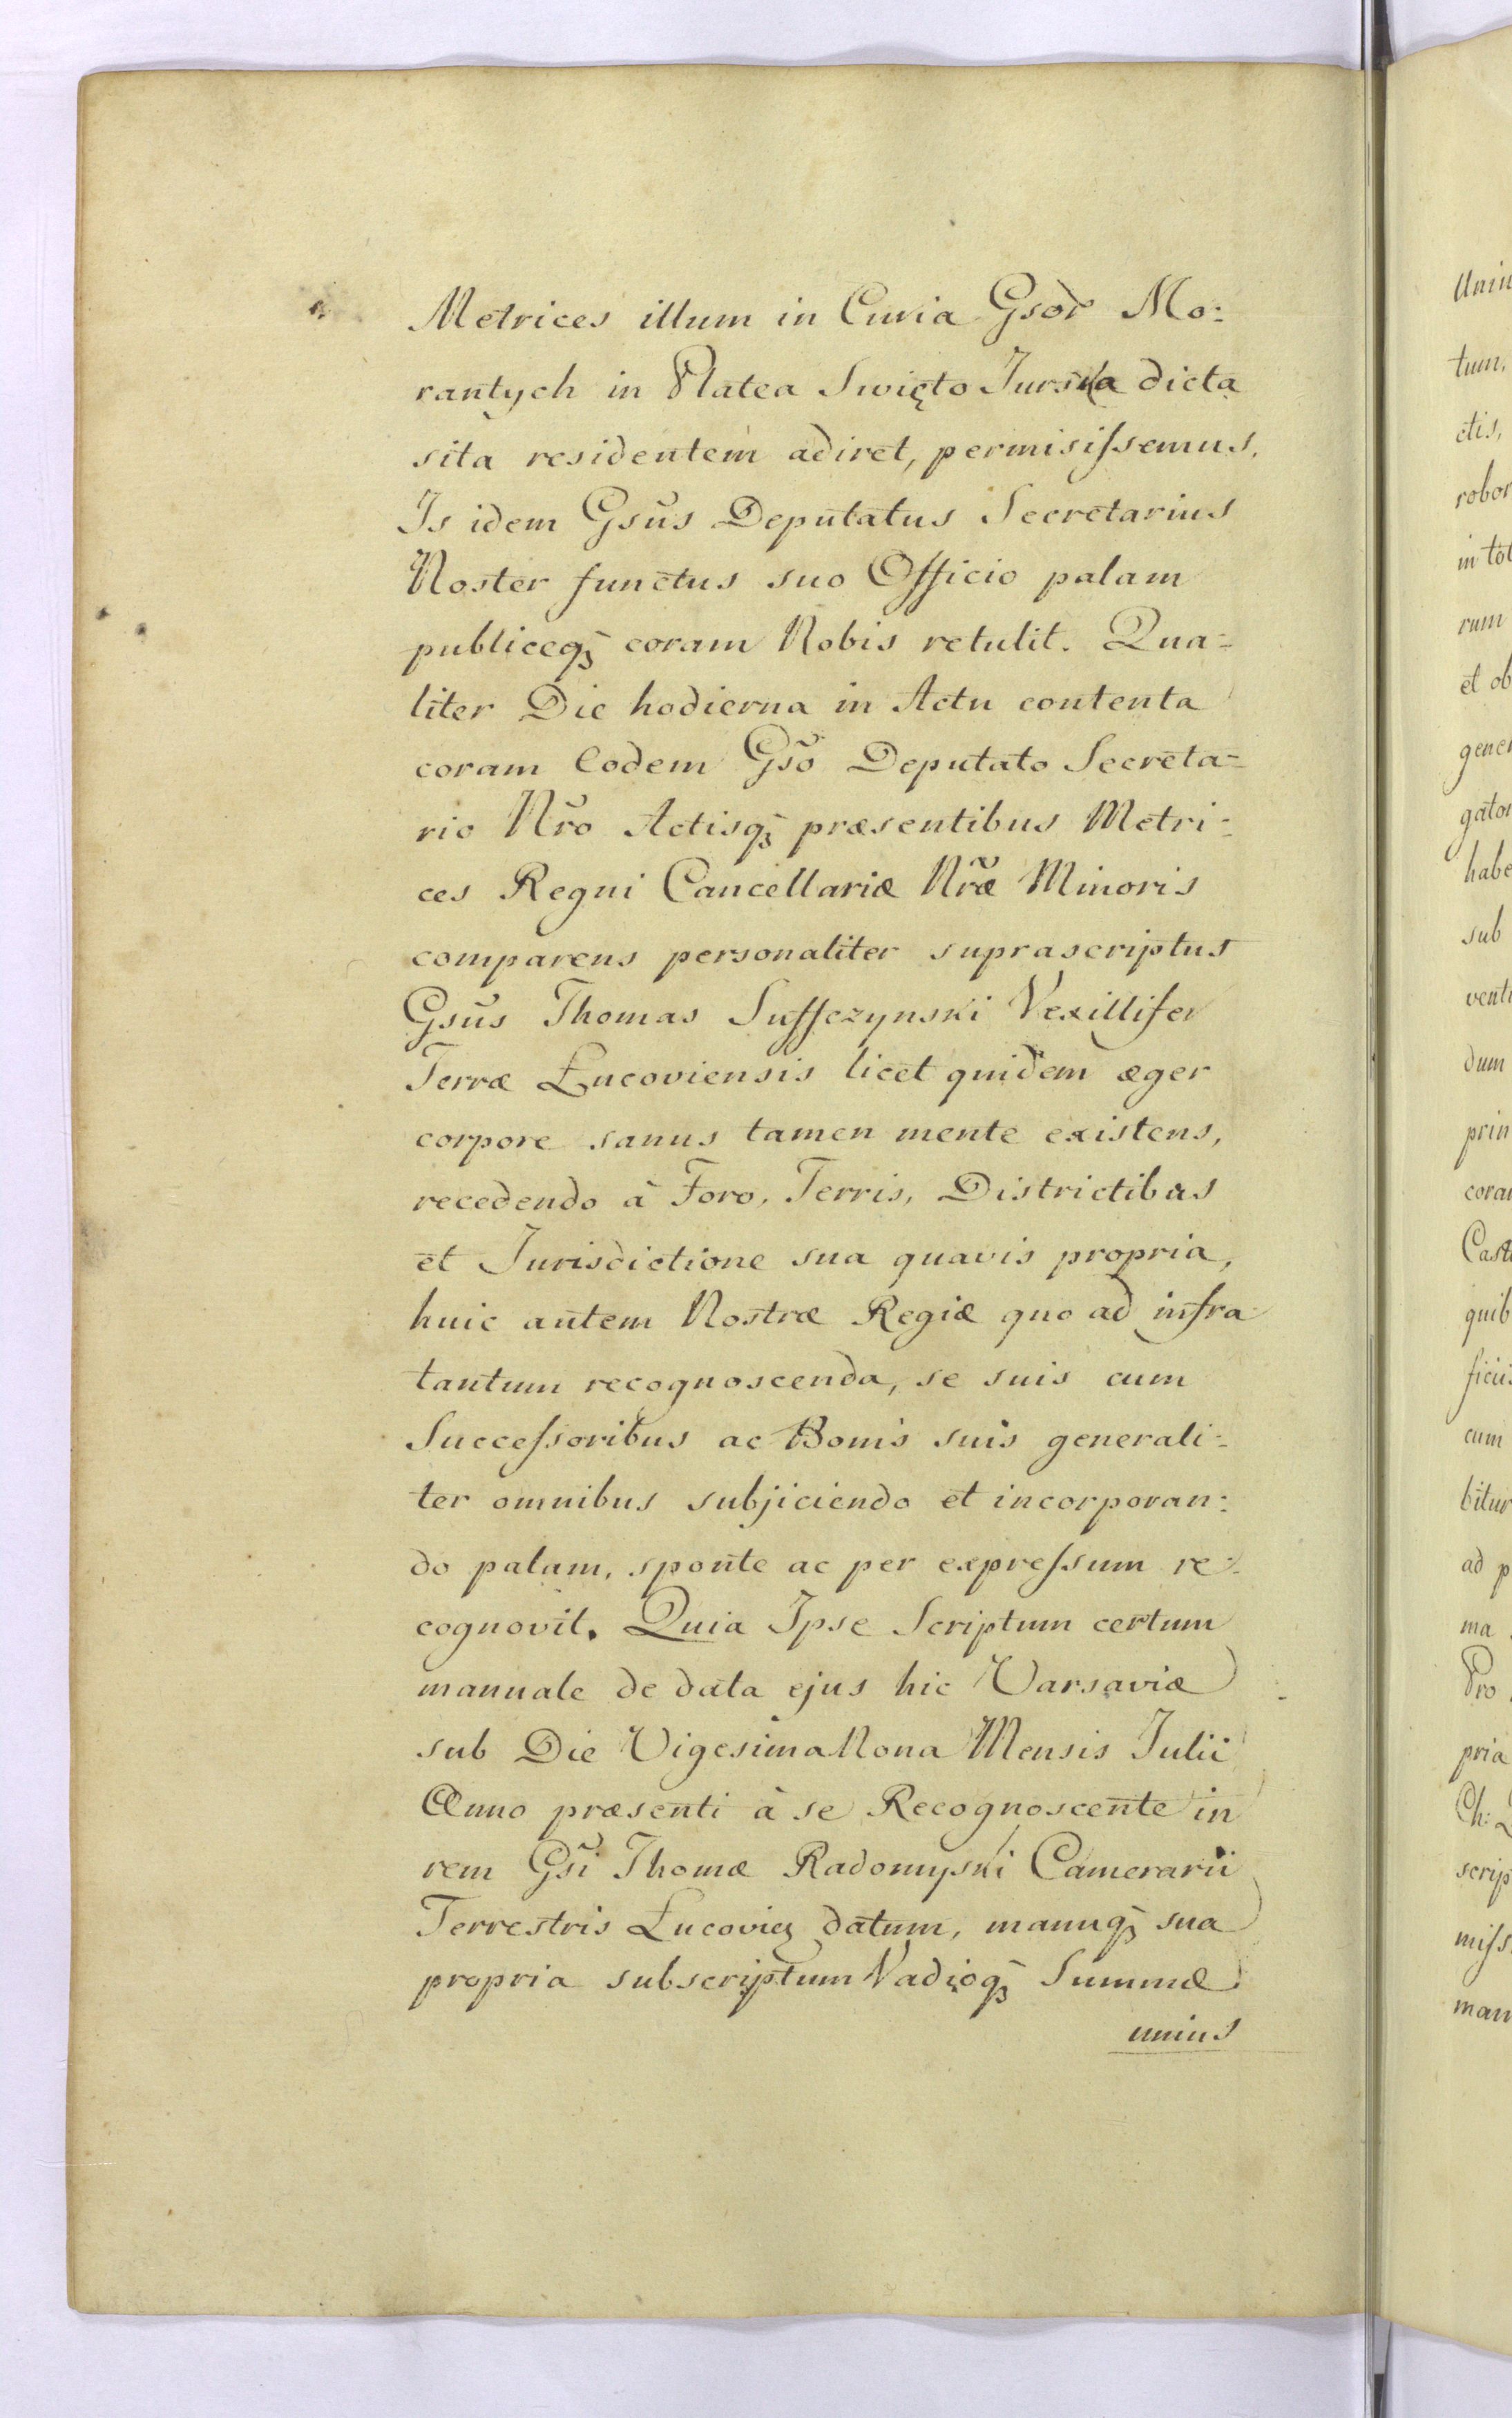 Metrices illum in Curia Gsõr Mo:
rantych in Platea Swięto Jurska dicta
sita residentem adiret, permisiſsemus.
Is idem Gsũs Deputatus Secretarius
Noster functus suo Officio palam
publiceqꝫ coram Nobis retulit. Qua=
liter Die hodierna in Actu contenta
coram Eodem Gsõ Deputato Secreta=
rio Nr̃o Actisqꝫ præsentibus Metri=
ces Regni Cancellariæ Nr̃æ Minoris
comparens personaliter suprascriptus
Gsũs Thomas Suffczynski Vexillifer
Terræ Łucoviensis licet quidem æger
corpore sanus tamen mente existens,
recedendo à Foro, Terris, Districtibus
et Jurisdictione sua quavis propria,
huic autem Nostræ Regiæ quo ad infra
tantum recognoscenda, se suis cum
Succeſsoribus ac Bonis suis generali=
ter omnibus subjiciendo et incorporan=
do palam, sponte ac per expreſsum re=
cognovit. Quia Ipse Scriptum certum
manuale de data ejus hic Varsaviæ
sub Die Vigesima Nona Mensis Julii
Anno præsenti à se Recognoscente in
rem Gsĩ Thomæ Radomyski Camerarii
Terrestris Łucovieȝ datum, manuqꝫ sua
propria subscriptum Vadioqꝫ Summæ
unius
Unin
tum,
ctis,
robor
in tot
rum
et ob
gener
gator
habe
sub
venti
dum
prin
coram
Cast
quib
ficiis
cum
bitur
ad p
ma
Pro
pria
Ch:
scrip
miſs
man